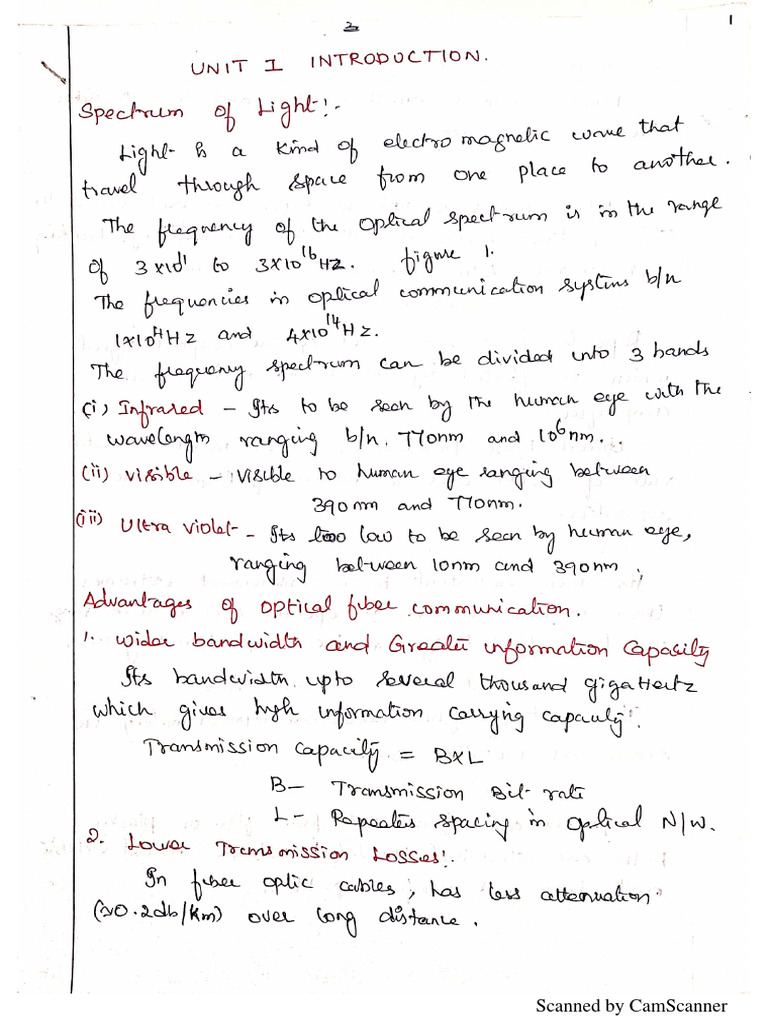 2 1
UNIT I INTRODUCTION.
Spectrum of Light!-
Light is a kind of electro magnetic wave that
travel through space from one place to another.
The frequency of the optical spectrum is in the range
of 3x10^11 to 3x10^16 Hz. figure 1.
The frequencies in optical communication systems b/n
1x10^4 Hz and 4x10^14 Hz.
The frequency spectrum can be divided into 3 bands
(i) Infrared - Its to be seen by the human eye with the
wavelength ranging b/n. 770nm and 10^6 nm...
(ii) Visible - Visible to human eye ranging between
390 nm and 770nm.
(iii) Ultra violet - Its too low to be seen by human eye,
ranging between 10nm and 390nm.
Advantages of optical fiber communication.
1. Wider bandwidth and Greater information Capacity
Its bandwidth upto several thousand gigaHertz
which gives high information carrying capacity.
Transmission Capacity = BXL
B- Transmission Bit rate
L- Repeaters spacing in optical N/W.
2. Lower Transmission Losses!.
In fiber optic cables, has less attenuation
(≈0.2db/km) over long distance.
Scanned by CamScanner